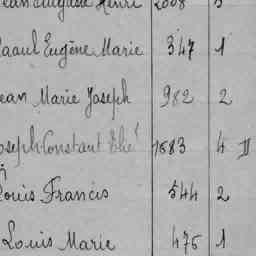 Jean Auguste Henri 2008 3
Raoul Eugène Marie 347 1
Jean Marie Joseph 982 2
Joseph Constant Elie 1883 4 II
Louis Francis 544 2
Louis Marie 476 1